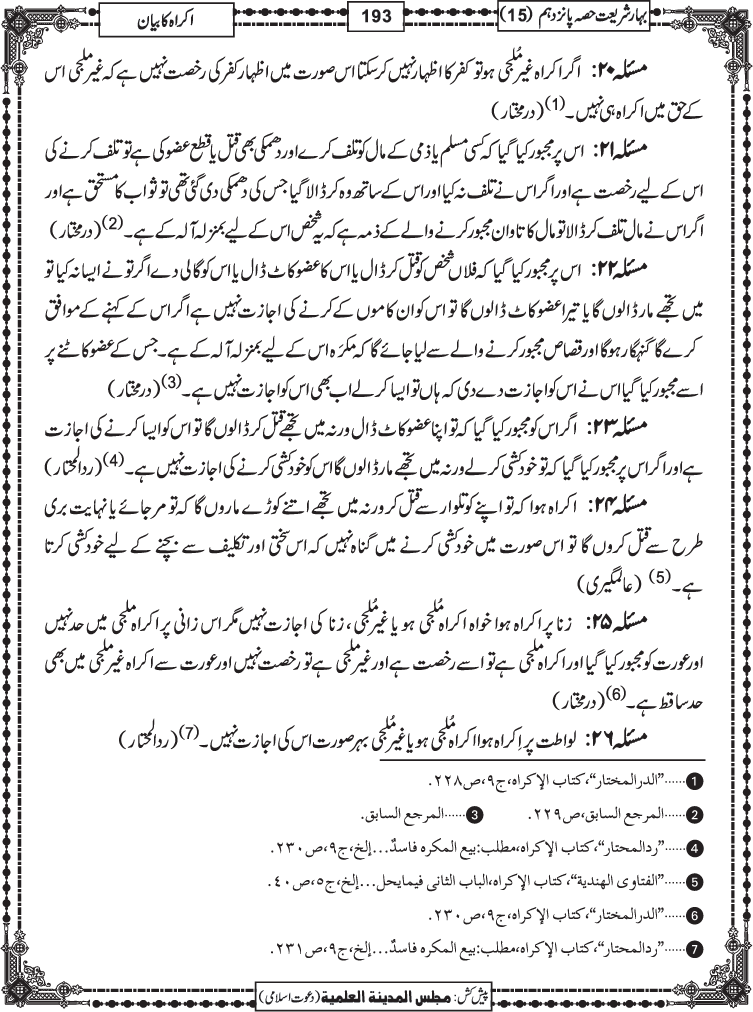 بہارِ شریعت حصہ پانزدہم (15)
193
اکراہ کا بیان
مسئلہ ۲۰: اگر اکراہ غیر مُلجی ہو تو کفر کا اظہار نہیں کرسکتا اس صورت میں اظہار کفر کی رخصت نہیں ہے کہ غیر ملجی اس
کے حق میں اکراہ ہی نہیں۔(1) (درمختار)
مسئلہ ۲۱: اس پر مجبور کیا گیا کہ کسی مسلم یا ذمی کے مال کو تلف کرے اور دھمکی بھی قتل یا قطع عضو کی ہے تو تلف کرنے کی
اس کے لیے رخصت ہے اور اگر اس نے تلف نہ کیا اور اس کے ساتھ وہ کر ڈالا گیا جس کی دھمکی دی گئی تھی تو ثواب کا مستحق ہے اور
اگر اس نے مال تلف کر ڈالا تو مال کا تاوان مجبور کرنے والے کے ذمہ ہے کہ یہ شخص اس کے لیے بمنزلہ آلہ کے ہے۔(2) (درمختار)
مسئلہ ۲۲: اس پر مجبور کیا گیا کہ فلاں شخص کو قتل کر ڈال یا اس کا عضو کاٹ ڈال یا اس کو گالی دے اگر تو نے ایسا نہ کیا تو
میں تجھے مار ڈالوں گا یا تیرا عضو کاٹ ڈالوں گا تو اس کو ان کاموں کے کرنے کی اجازت نہیں ہے اگر اس کے کہنے کے موافق
کرے گا گنہگار ہوگا اور قصاص مجبور کرنے والے سے لیا جائے گا کہ مکرَہ اس کے لیے بمنزلہ آلہ کے ہے۔ جس کے عضو کاٹنے پر
اسے مجبور کیا گیا اس نے اس کو اجازت دے دی کہ ہاں تو ایسا کرلے اب بھی اس کو اجازت نہیں ہے۔(3) (درمختار)
مسئلہ ۲۳: اگر اس کو مجبور کیا گیا کہ تو اپنا عضو کاٹ ڈال ورنہ میں تجھے قتل کر ڈالوں گا تو اس کو ایسا کرنے کی اجازت
ہے اور اگر اس پر مجبور کیا گیا کہ تو خودکشی کرلے ورنہ میں تجھے مار ڈالوں گا اس کو خودکشی کرنے کی اجازت نہیں ہے۔(4) (ردالمحتار)
مسئلہ ۲۴: اکراہ ہوا کہ تو اپنے کو تلوار سے قتل کر ورنہ میں تجھے اتنے کوڑے ماروں گا کہ تو مرجائے یا نہایت بری
طرح سے قتل کروں گا تو اس صورت میں خودکشی کرنے میں گناہ نہیں کہ اس سختی اور تکلیف سے بچنے کے لیے خودکشی کرتا
ہے۔(5) (عالمگیری)
مسئلہ ۲۵: زنا پر اکراہ ہوا خواہ اکراہ مُلجی ہو یا غیر مُلجی، زنا کی اجازت نہیں مگر اس زانی پر اکراہ ملجی میں حد نہیں
اور عورت کو مجبور کیا گیا اور اکراہ ملجی ہے تو اسے رخصت ہے اور غیر ملجی ہے تو رخصت نہیں اور عورت سے اکراہ غیر ملجی میں بھی
حد ساقط ہے۔(6) (درمختار)
مسئلہ ۲۶: لواطت پر اِکراہ ہوا اکراہ مُلجی ہو یا غیر مُلجی بہر صورت اس کی اجازت نہیں۔(7) (ردالمحتار)
1......"الدرالمختار"،کتاب الإکراہ،ج۹،ص۲۲۸.
2......المرجع السابق،ص۲۲۹. 3......المرجع السابق.
4......"ردالمحتار"،کتاب الإکراہ،مطلب:بیع المکرہ فاسدٌ...إلخ،ج۹،ص۲۳۰.
5......"الفتاوی الهندیة"،کتاب الإکراہ،الباب الثانی فیمایحل...إلخ،ج۵،ص۴۰.
6......"الدرالمختار"،کتاب الإکراہ،ج۹،ص۲۳۰.
7......"ردالمحتار"،کتاب الإکراہ،مطلب:بیع المکرہ فاسدٌ...إلخ،ج۹،ص۲۳۱.
پیش کش: مجلس المدینة العلمیة (دعوت اسلامی)